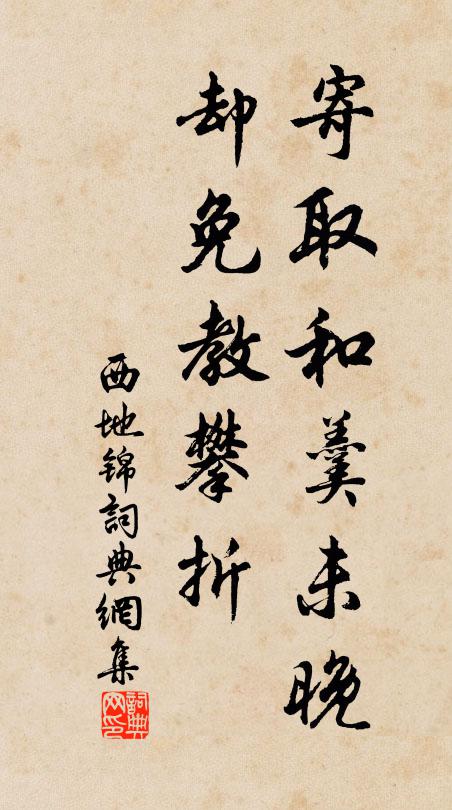 寄取和羹未晚
却免教攀折
西地锦詞典網集
詞典网印